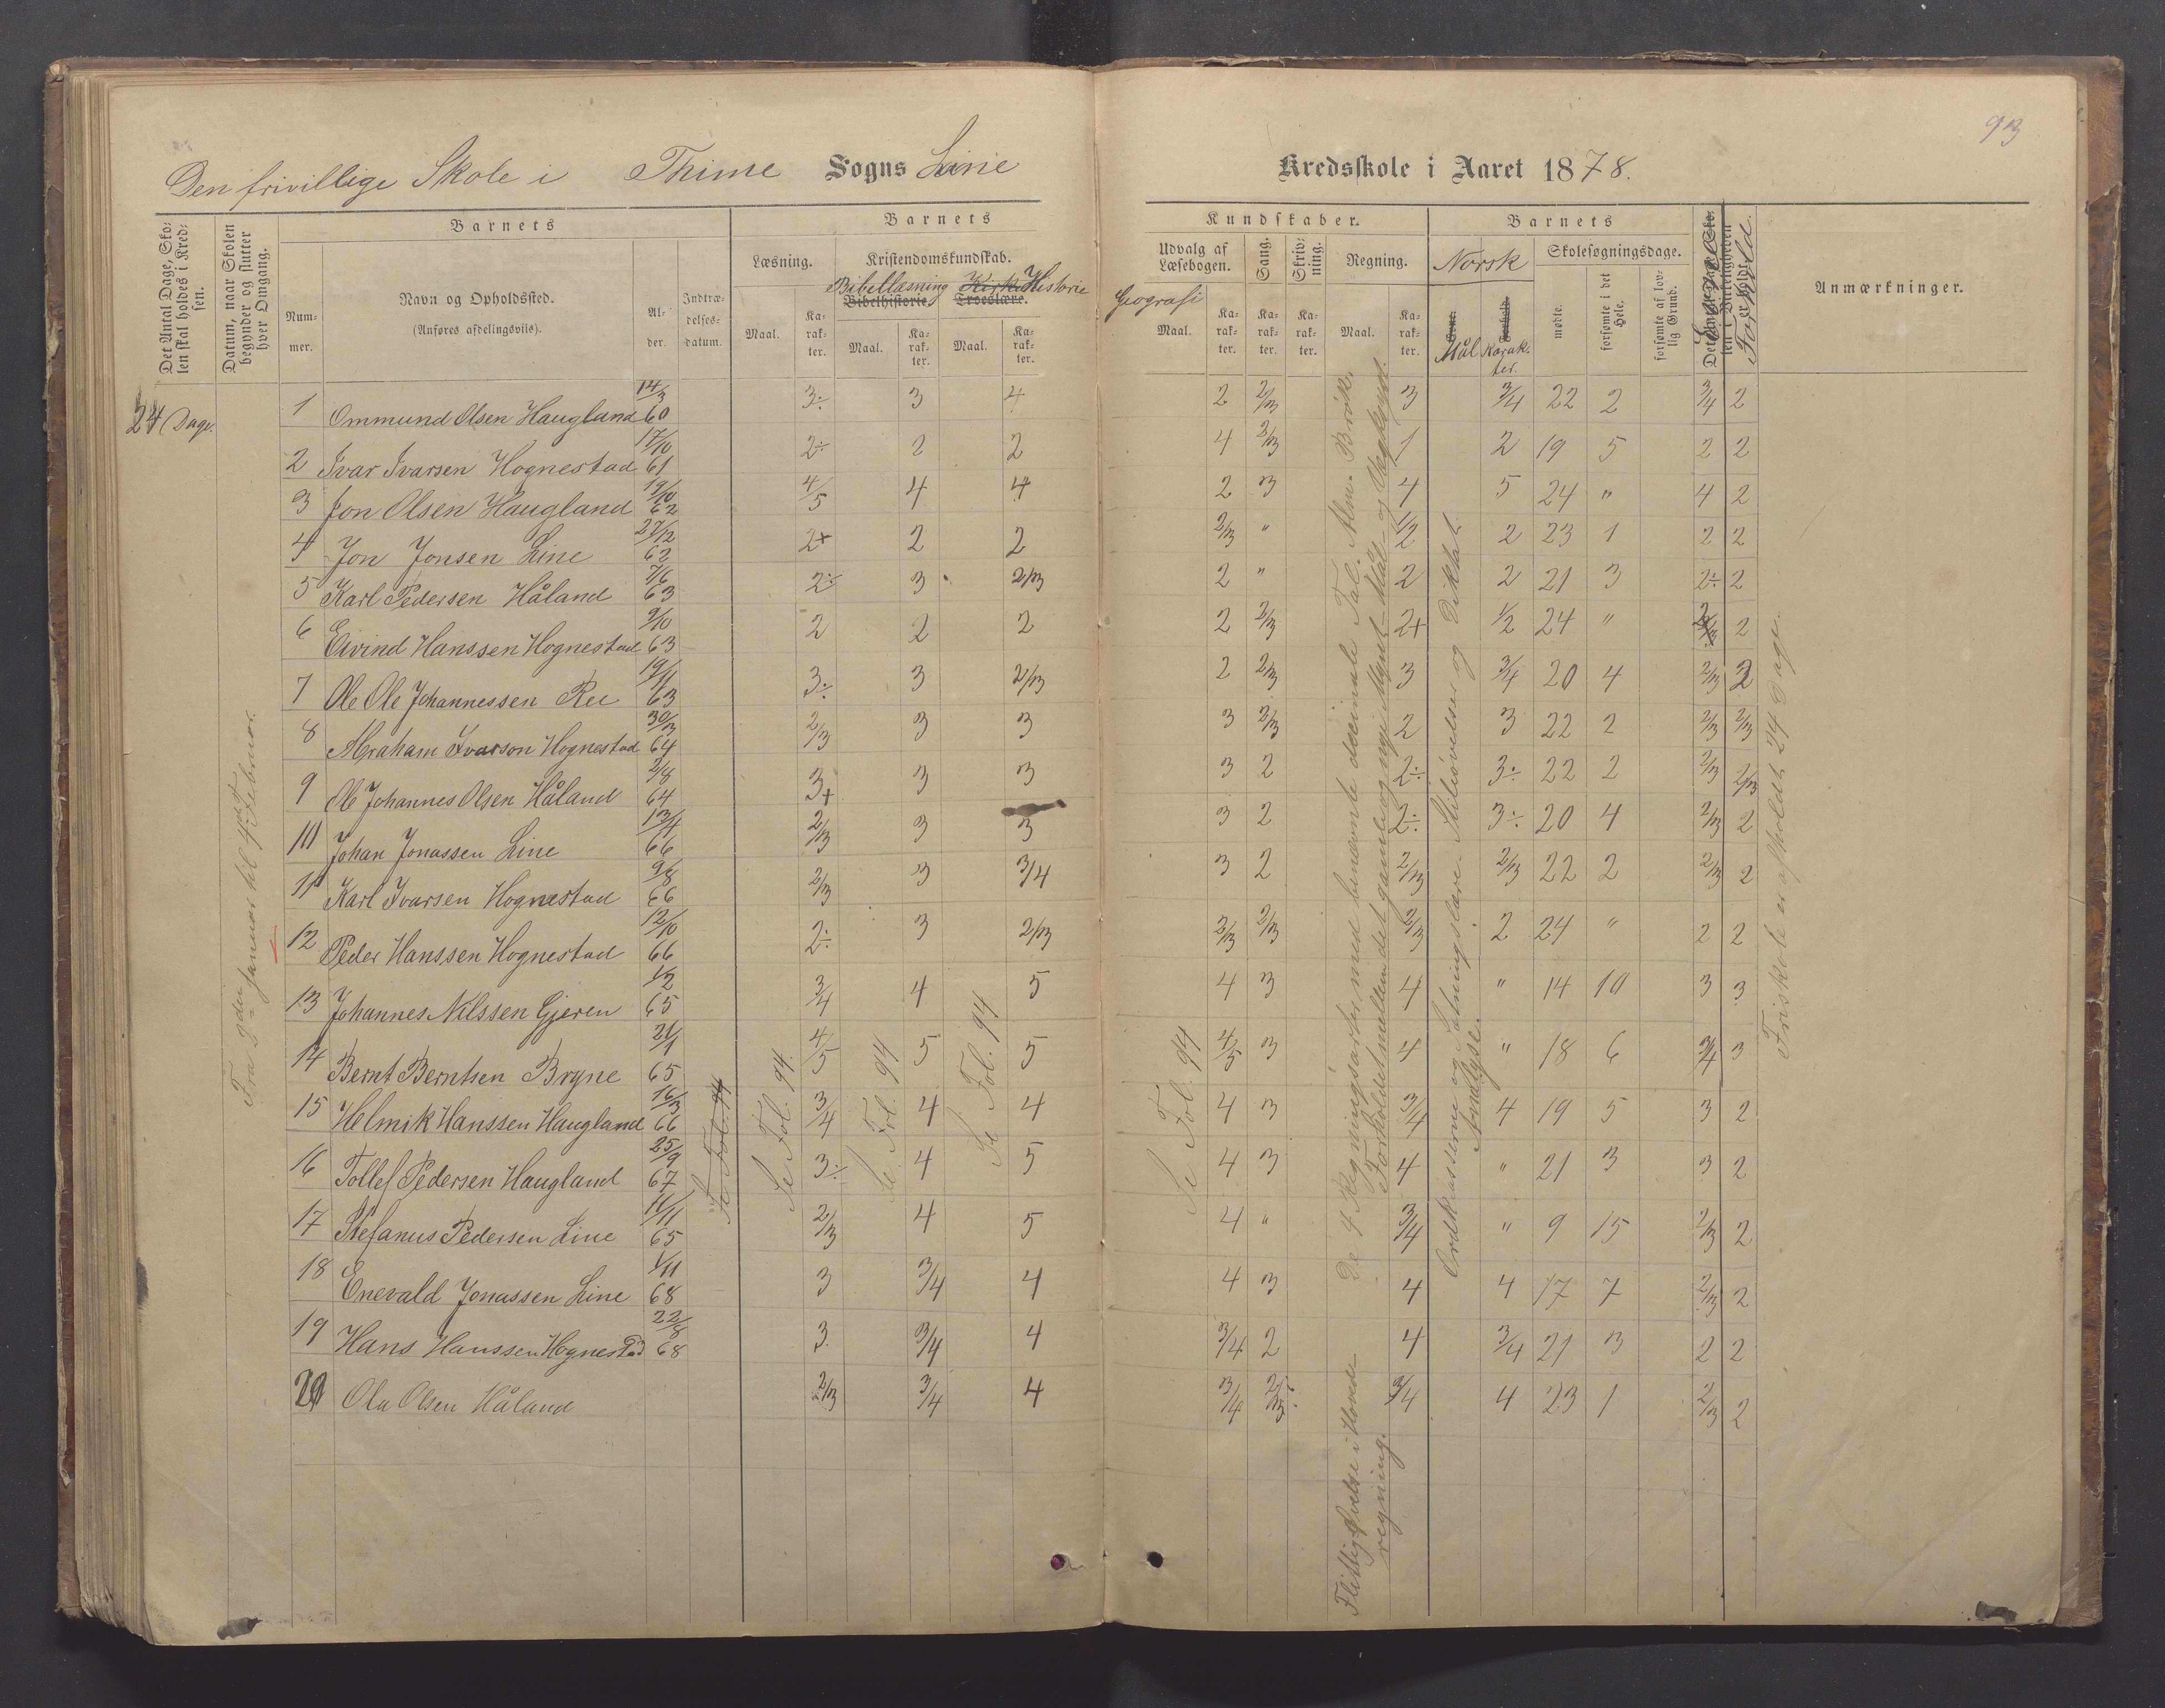 93
Den frivillige Skole i Thime Sogns Line Kredsskole i Aaret 1878.
Det Antal Dage, Skolen skal holdes i Kredsen.
Datum, naar Skolen begynder og slutter hver Omgang.
Barnets
Nummer.
Navn og Opholdssted.
(Anføres afdelingsviis).
Alder.
Indtrædelsesdatum.
Barnets
Læsning.
Maal.
Karakter.
Kristendomskundskab.
Bibellæsning Kirke Historie
Bibelhistorie. Troeslære.
Maal.
Karakter.
Maal.
Karakter.
Kundskaber.
Udvalg af Læsebogen.
Geografi
Maal.
Karakter.
Sang.
Karakter.
Skrivning.
Karakter.
Regning.
Maal.
Karakter.
Barnets
Norsk
Mål Karakter.
Skolesøgningsdage.
mødte.
forsømte i det Hele.
forsømte af lovlig Grund.
Det Antal Dage Skolen i Virkeligheden er holdt.
Forhold
Anmærkninger.
24 Dage.
1 Ommund Olsen Haugland 14/3 60 3÷ 3 4 2 2/3 3 3/4 22 2 3/4 2
2 Ivar Ivarsen Hognestad 17/10 61 2÷ 2 2 4 2/3 1 2 19 5 2 2
3 Jon Olsen Haugland 19/10 62 4/5 4 4 2 3 4 5 24 " 4 2
4 Jon Jonsen Line 27/12 62 2+ 2 2 2/3 " 1/2 2 23 1 2 2
5 Karl Pedersen Håland 7/6 63 2÷ 3 2/3 2 " 2 2 21 3 2÷ 2
6 Eivind Hanssen Hognestad 9/10 63 2 2 2 2 2/3 2+ 1/2 24 " 2 2
7 Ole Ole Johannessen Ree 19/11 63 3÷ 3 2/3 2 2/3 3 3/4 20 4 2/3 2
8 Abraham Ivarson Hognestad 30/3 64 2/3 3 3 3 2/3 2 3 22 2 2/3 2/3
9 Ole Johannes Olsen Håland 2/8 64 3+ 3 3 3 2 2÷ 3÷ 22 2 2/3 2/3
10 Johan Jonassen Line 13/4 66 2/3 3 3 3 2 2÷ 3÷ 20 4 2/3 2
11 Karl Ivarsen Hognestad 9/8 66 2/3 3 3/4 3 2 2/3 2/3 22 2 2/3 2
12 Peder Hanssen Hognestad 12/10 66 2÷ 3 2/3 2/3 2/3 2/3 2 24 " 2 2
13 Johannes Nilssen Gjeren 1/2 65 3/4 4 5 4 3 4 " 14 10 3 3
14 Bernt Berntsen Bryne 21/1 65 4/5 5 5 4/5 3 4 " 18 6 3/4 3
15 Helmik Hanssen Haugland 16/3 66 3/4 4 4 4 3 3/4 4 19 5 3 2
16 Tollef Pedersen Haugland 25/9 67 3÷ 4 5 4 3 4 " 21 3 3 2
17 Stefanus Pedersen Line 11/11 65 2/3 4 5 4 " 3/4 " 9 15 2/3 2
18 Enevald Jonassen Line 1/11 68 3 3/4 4 4 3 4 4 17 7 2/3 2
19 Hans Hanssen Hognestad 22/8 68 3 3/4 4 3/4 2 4 3/4 21 3 2 2
20 Ola Olsen Håland 2/3 3/4 4 3/4 2/3 3/4 4 23 1 2/3 2
Se Fol. 94
Se Fol. 94.
Se Fol. 94
Se Fol. 94
Se Fol. 94
De 4 Regningsarter med benævnte decimale Tal. Alm. Brøk.
Forholdet mellem det gamle og nye Mynt- Mål- og Vægtsyst.
Flittig Øvelse i Hovedregning.
Ordklasserne og Sætningslære. Stiløvelser og Diktat.
Analyse.
Friskole er afholdt 24 Dage.